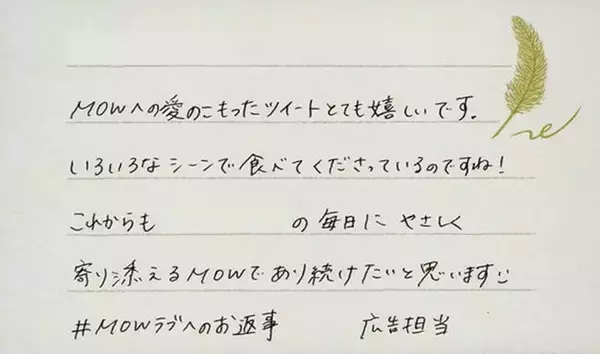 MOWへの愛のこもったツイートとても嬉しいです.
いろいろなシーンで食べてくださっているのですね!
これからも の毎日に やさしく
寄り添えるMOWであり続けたいと思います
#MOWラブへのお返事 広告担当